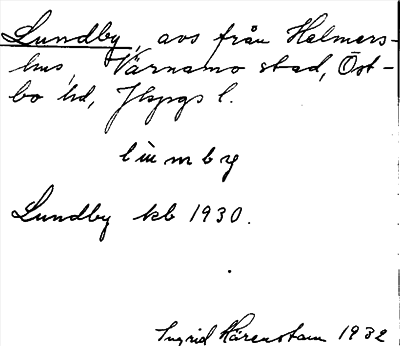 Lundby, avs från Helmers-
hus, Värnamo stad, Öst-
bo hd, Jkpgs l.
Lundby kb 1930.
Ingrid Härenstam 1932